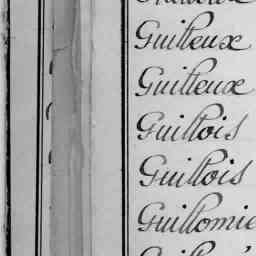 Guilleux
Guilleux
Guillois
Guillois
Guillomie